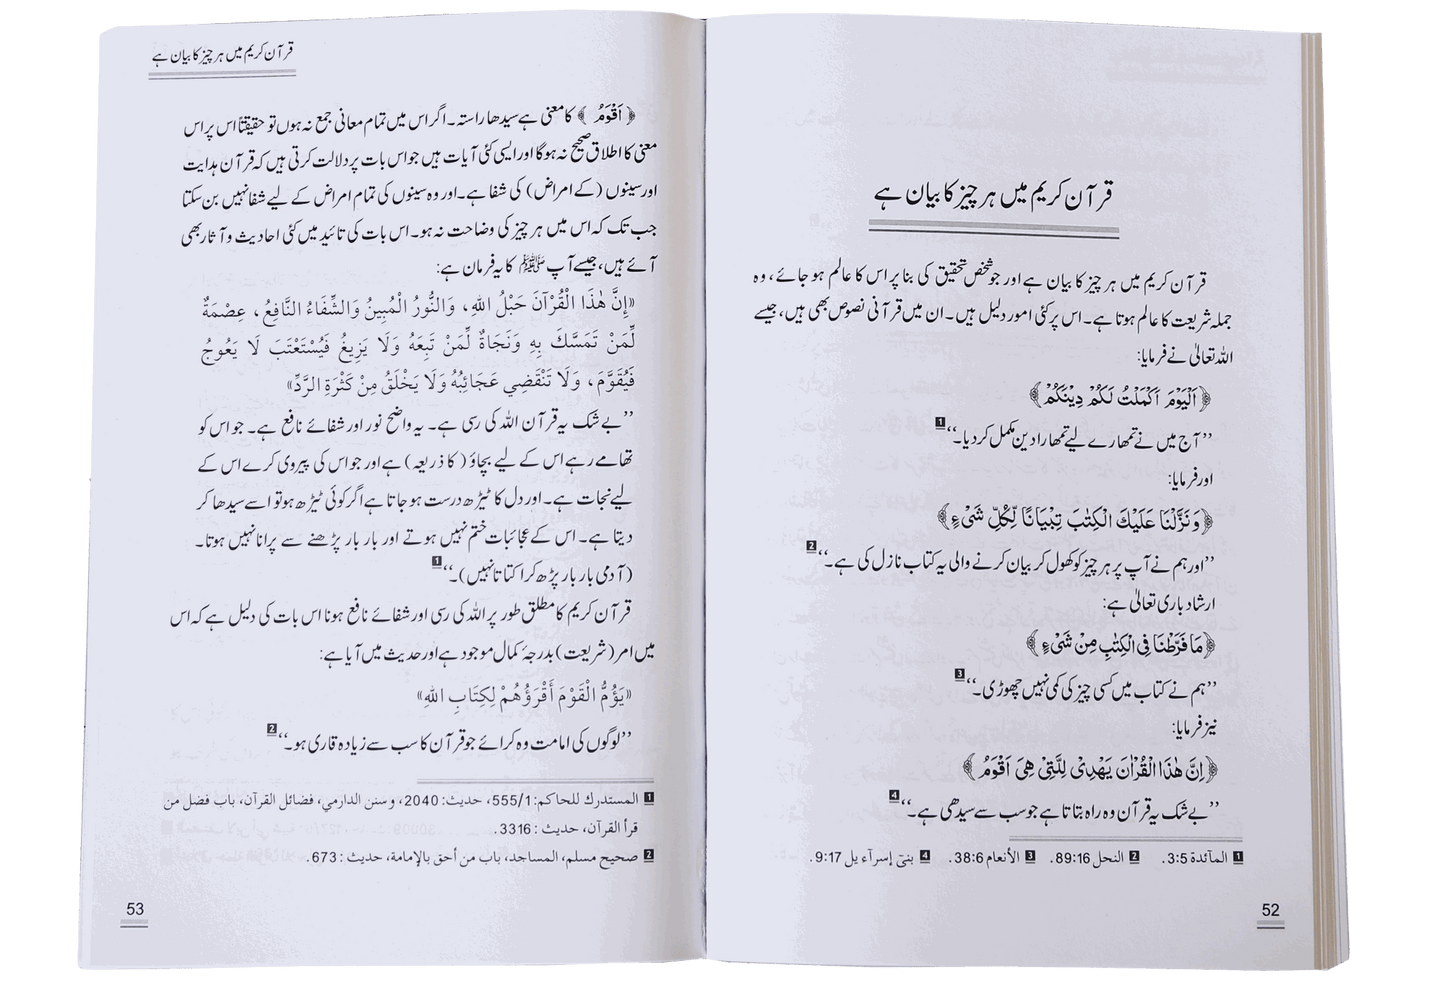 قرآن کریم میں ہر چیز کا بیان ہے
قرآن کریم میں ہر چیز کا بیان ہے اور جو شخص تحقیق کی بنا پر اس کا عالم ہو جائے، وہ
جملہ شریعت کا عالم ہوتا ہے۔ اس پر کئی امور دلیل ہیں۔ ان میں قرآنی نصوص بھی ہیں، جیسے
اللہ تعالیٰ نے فرمایا:
﴿اَلْيَوْمَ اَكْمَلْتُ لَكُمْ دِيْنَكُمْ﴾
’’آج میں نے تمھارے لیے تمھارا دین مکمل کر دیا۔‘‘ 1
اور فرمایا:
﴿وَنَزَّلْنَا عَلَيْكَ الْكِتٰبَ تِبْيَانًا لِّكُلِّ شَيْءٍ﴾
’’اور ہم نے آپ پر ہر چیز کو کھول کر بیان کرنے والی یہ کتاب نازل کی ہے۔‘‘ 2
ارشاد باری تعالیٰ ہے:
﴿مَا فَرَّطْنَا فِى الْكِتٰبِ مِنْ شَيْءٍ﴾
’’ہم نے کتاب میں کسی چیز کی کمی نہیں چھوڑی۔‘‘ 3
نیز فرمایا:
﴿اِنَّ هٰذَا الْقُرْاٰنَ يَهْدِىْ لِلَّتِىْ هِىَ اَقْوَمُ﴾
’’بے شک یہ قرآن وہ راہ بتاتا ہے جو سب سے سیدھی ہے۔‘‘ 4
1 المآئدة 3:5. 2 النحل 89:16. 3 الأنعام 38:6. 4 بنیٓ إسرآءیل 9:17.
52
قرآن کریم میں ہر چیز کا بیان ہے
﴿اَقْوَمُ﴾ کا معنی ہے سیدھا راستہ۔ اگر اس میں تمام معانی جمع نہ ہوں تو حقیقتاً اس پر اس
معنی کا اطلاق صحیح نہ ہوگا اور ایسی کئی آیات ہیں جو اس بات پر دلالت کرتی ہیں کہ قرآن ہدایت
اور سینوں (کے امراض) کی شفا ہے۔ اور وہ سینوں کی تمام امراض کے لیے شفا نہیں بن سکتا
جب تک کہ اس میں ہر چیز کی وضاحت نہ ہو۔ اس بات کی تائید میں کئی احادیث و آثار بھی
آئے ہیں، جیسے آپ ﷺ کا یہ فرمان ہے:
«إِنَّ هٰذَا الْقُرْآنَ حَبْلُ اللهِ، وَالنُّورُ الْمُبِينُ وَالشِّفَاءُ النَّافِعُ، عِصْمَةٌ
لِّمَنْ تَمَسَّكَ بِهِ وَنَجَاةٌ لِّمَنْ تَبِعَهُ وَلَا يَزِيغُ فَيُسْتَعْتَبَ لَا يَعُوجُ
فَيُقَوَّمَ، وَلَا تَنْقَضِي عَجَائِبُهُ وَلَا يَخْلَقُ مِنْ كَثْرَةِ الرَّدِّ»
’’بے شک یہ قرآن اللہ کی رسی ہے۔ یہ واضح نور اور شفائے نافع ہے۔ جو اس کو
تھامے رہے اس کے لیے بچاؤ (کا ذریعہ) ہے اور جو اس کی پیروی کرے اس کے
لیے نجات ہے۔ اور دل کا ٹیڑھ درست ہو جاتا ہے اگر کوئی ٹیڑھ ہو تو اسے سیدھا کر
دیتا ہے۔ اس کے عجائبات ختم نہیں ہوتے اور بار بار پڑھنے سے پرانا نہیں ہوتا۔
(آدمی بار بار پڑھ کر اکتاتا نہیں)۔‘‘ 1
قرآن کریم کا مطلق طور پر اللہ کی رسی اور شفائے نافع ہونا اس بات کی دلیل ہے کہ اس
میں امر (شریعت) بدرجہ کمال موجود ہے اور حدیث میں آیا ہے:
«يَؤُمُّ الْقَوْمَ أَقْرَؤُهُمْ لِكِتَابِ اللهِ»
’’لوگوں کی امامت وہ کرائے جو قرآن کا سب سے زیادہ قاری ہو۔‘‘ 2
1 المستدرك للحاكم: 555/1، حديث: 2040، وسنن الدارمي، فضائل القرآن، باب فضل من
قرأ القرآن، حديث : 3316.
2 صحيح مسلم، المساجد، باب من أحق بالإمامة، حديث : 673.
53